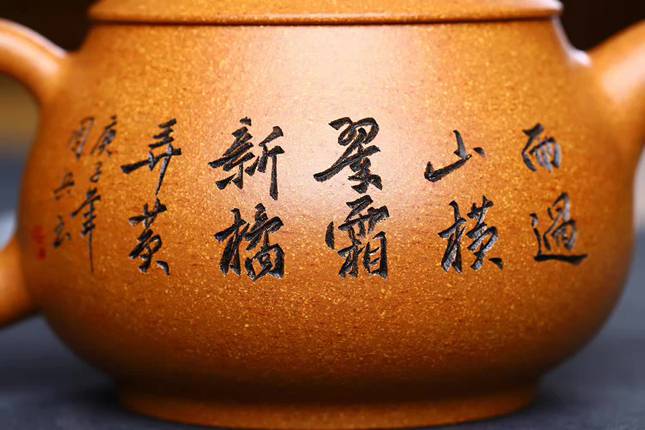 雨過
山横
翠霜
新橘
弄黄
庚子年
周